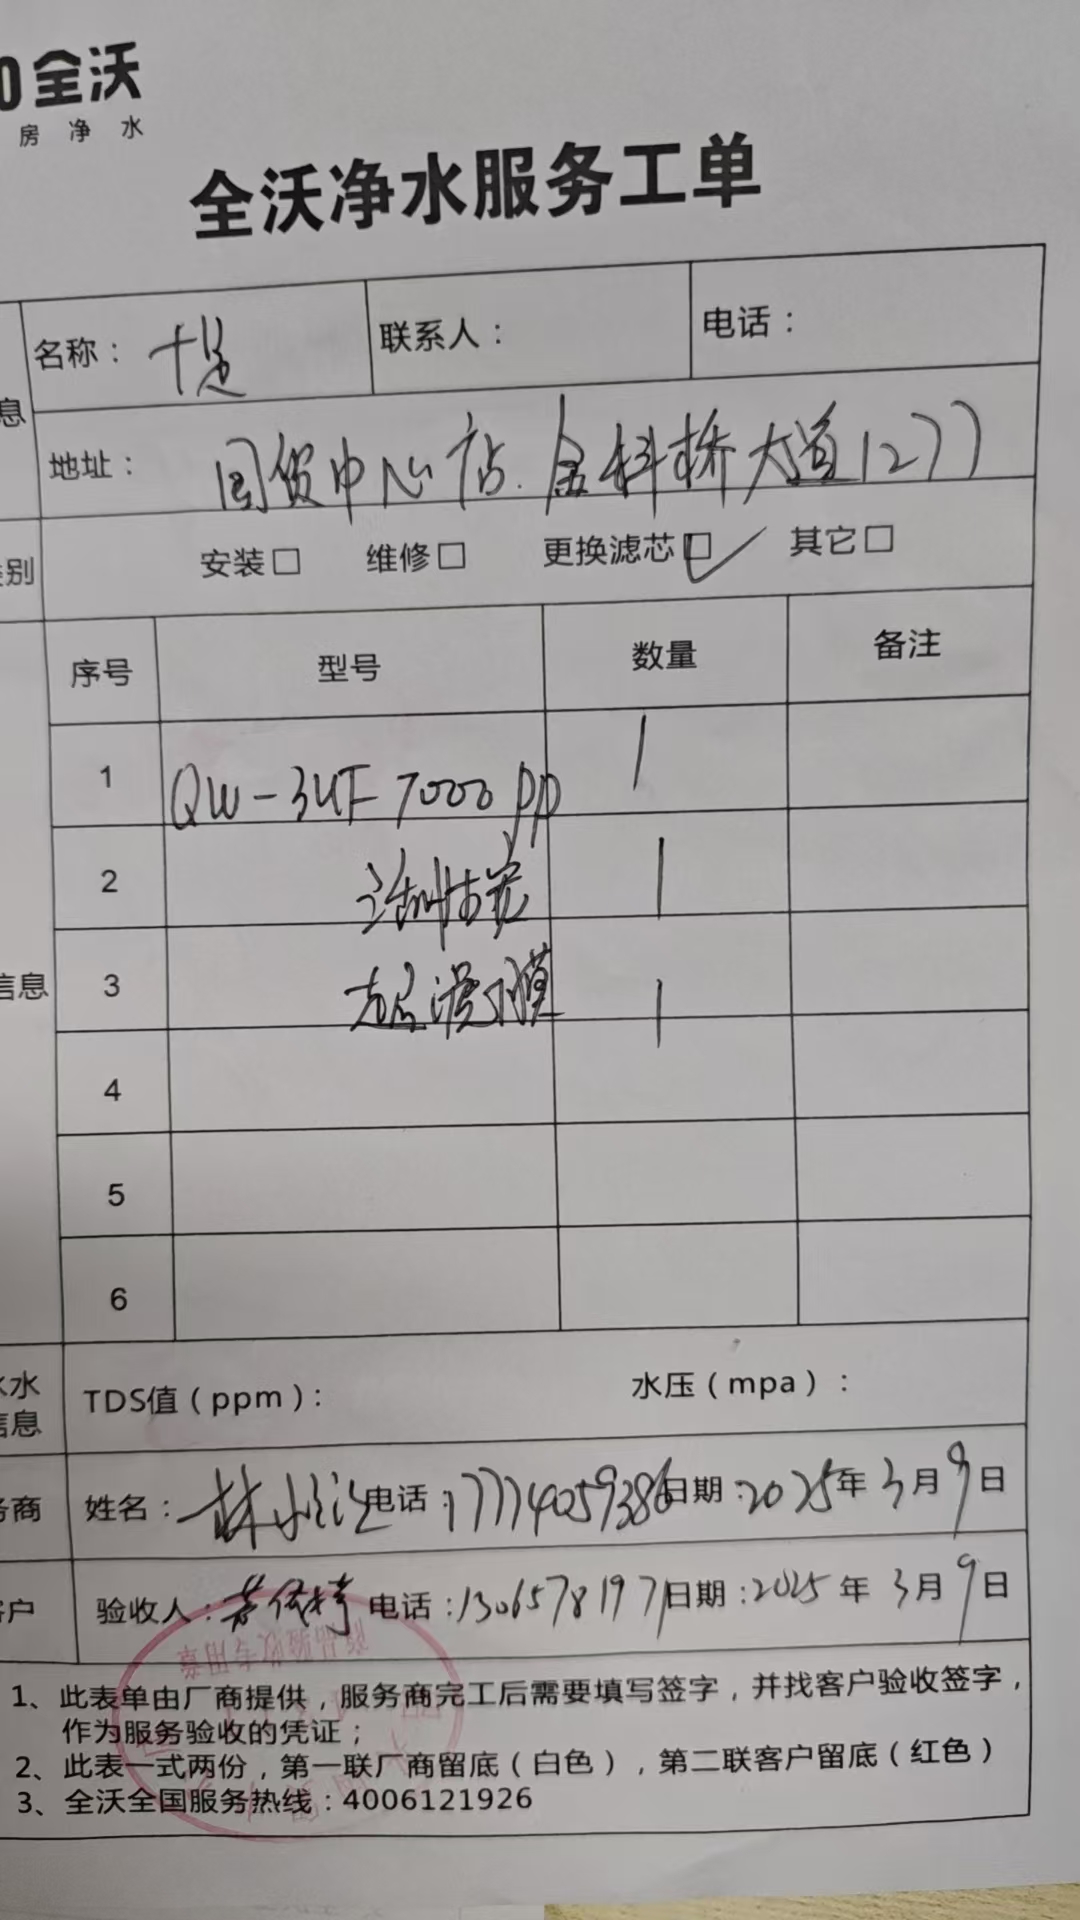 全沃
房净水
全沃净水服务工单
息 名称： 联系人： 电话：
地址： 国货中心店. 金科桥大道1277
别 安装□ 维修□ 更换滤芯□✓ 其它□
序号 型号 数量 备注
1 QW-3UF 7000 PP 1
2 活性炭 1
信息 3 超滤膜 1
4
5
6
水 TDS值（ppm）： 水压（mpa）：
信息
务商 姓名：林 电话：17774059386 日期：2025年3月9日
客户 验收人： 电话：13065781971 日期：2025年3月9日
1、此表单由厂商提供，服务商完工后需要填写签字，并找客户验收签字，
作为服务验收的凭证；
2、此表一式两份，第一联厂商留底（白色），第二联客户留底（红色）
3、全沃全国服务热线：4006121926